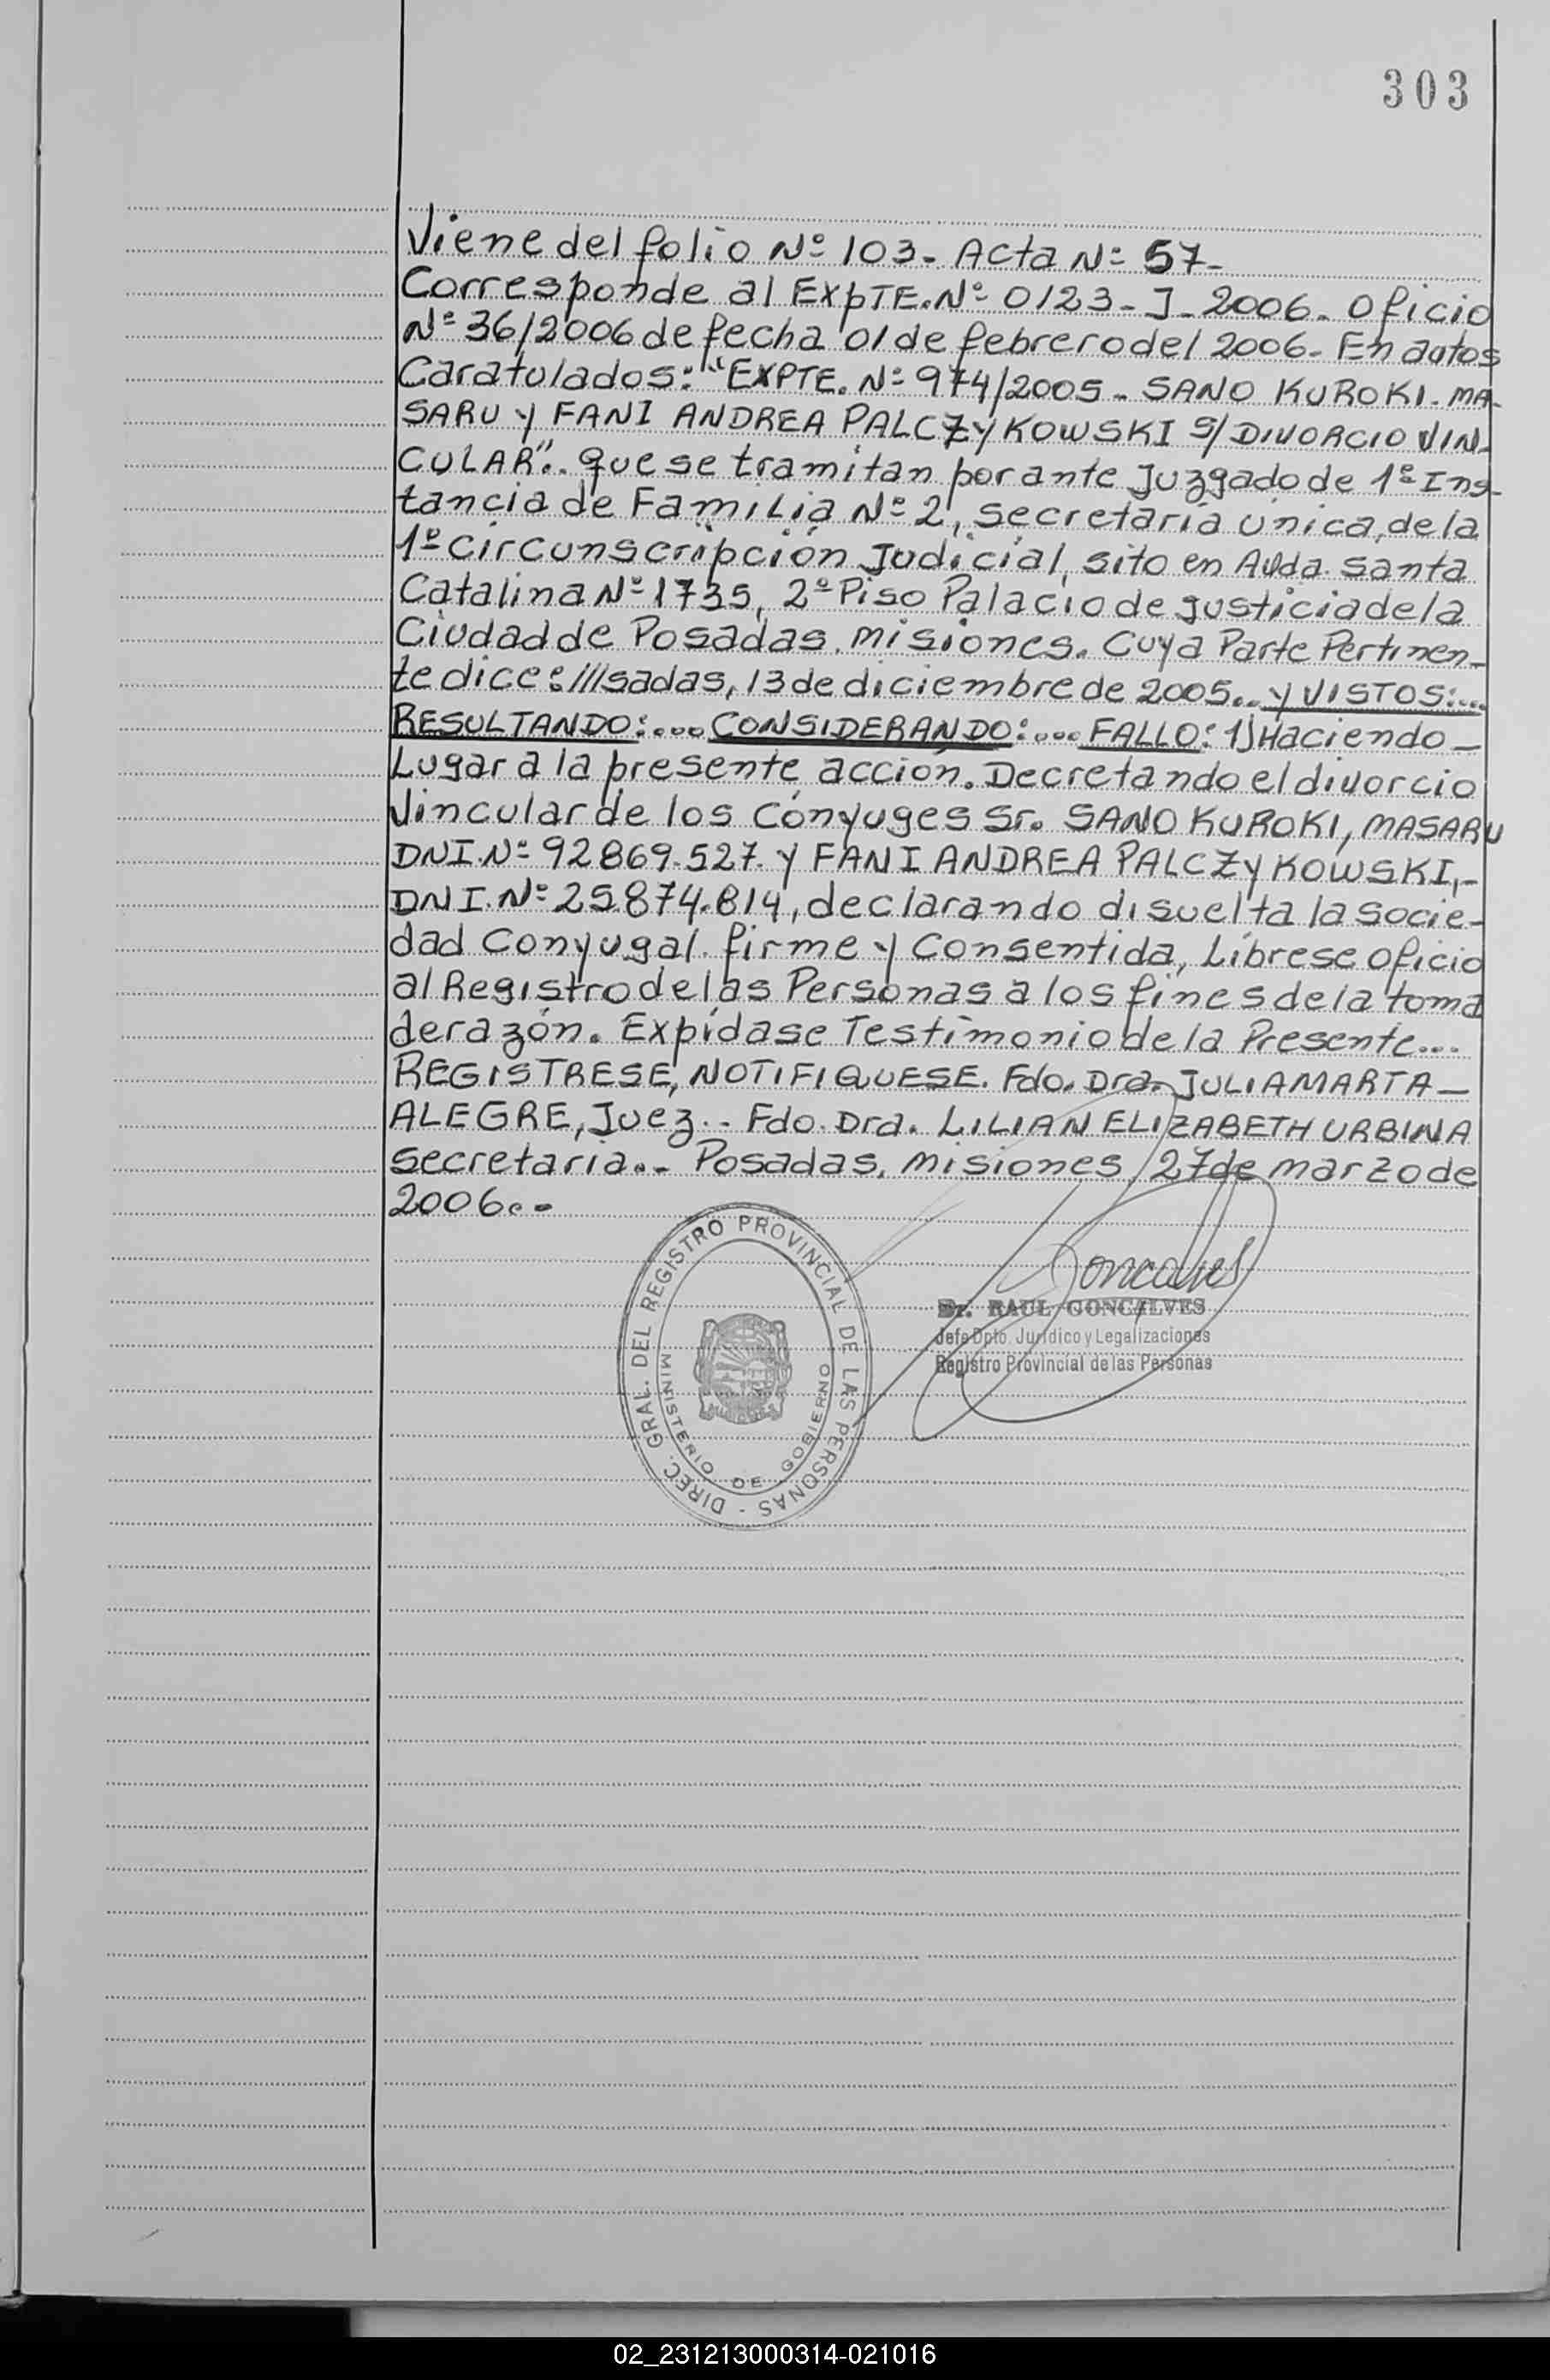 303
Viene del folio Nº 103- Acta Nº 57-
Corresponde al EXpTE.Nº 0123-J-2006- Oficio
Nº 36/2006 de fecha 01 de febrero del 2006- En autos
Caratulados: "EXPTE. Nº 974/2005- SANO KUROKI- MA-
SARU y FANI ANDREA PALCZYKOWSKI S/ DIVORCIO VIN-
CULAR".. que se tramitan por ante Juzgado de 1º Ins-
tancia de Familia Nº 2, Secretaría única, de la
1º Circunscripción Judicial, sito en Avda. Santa
Catalina Nº 1735, 2º Piso Palacio de justicia de la
Ciudad de Posadas, misiones. Cuya Parte Pertinen-
te dice: ///sadas, 13 de diciembre de 2005.. y VISTOS:...
RESULTANDO:.... CONSIDERANDO:.... FALLO: 1) Haciendo -
Lugar a la presente acción. Decretando el divorcio
Vincular de los Cónyuges Sr. SANO KUROKI, MASARU
DNI.Nº 92869.527. y FANI ANDREA PALCZYKOWSKI,-
DNI.Nº 25.874.814, declarando disuelta la Socie-
dad Conyugal. firme y Consentida, Líbrese oficio
al Registro de las Personas a los fines de la toma
de razón. Expídase Testimonio de la Presente...
REGISTRESE, NOTIFIQUESE. Fdo. Dra. JULIA MARTA -
ALEGRE, Juez.- Fdo. Dra. LILIAN ELIZABETH URBINA
Secretaria..- Posadas, misiones, 27 de marzo de
2006..-
DIREC. GRAL. DEL REGISTRO PROVINCIAL DE LAS PERSONAS -
MINISTERIO DE GOBIERNO
Goncalves
Dr. RAUL GONCALVES
Jefe Dpto. Jurídico y Legalizaciones
Registro Provincial de las Personas
02_231213000314-021016